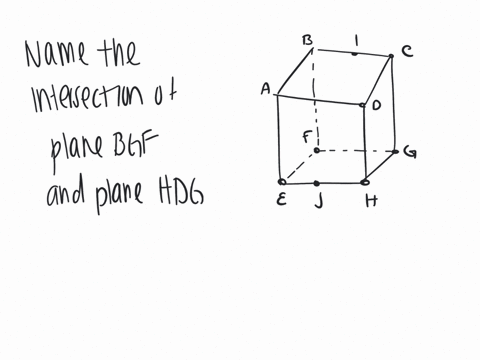 Name the
intersection of
plane BGF
and plane HDG
B
I
C
A
D
F
G
E
J
H